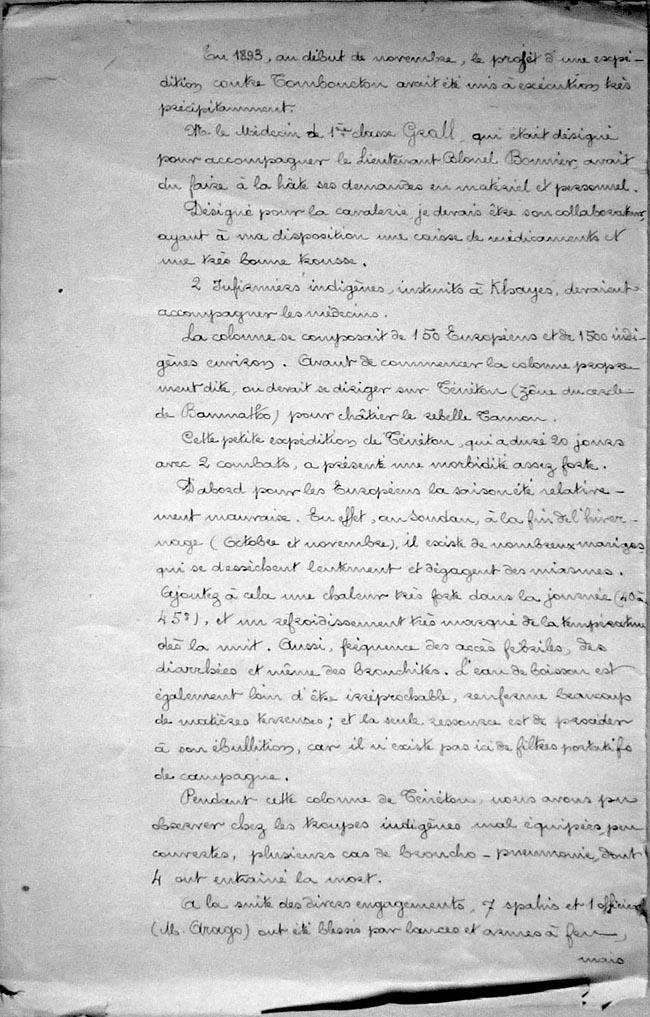 En 1893, au début de novembre, le projet d'une expé-
dition contre Tombouctou avait été mis à exécution très
précipitamment.
M. le Médecin de 1ère classe Grall, qui était désigné
pour accompagner le Lieutenant Colonel Bonnier, avait
du faire à la hâte ses demandes en matériel et personnel.
Désigné pour la cavalerie, je devais être son collaborateur,
ayant à ma disposition une caisse de médicaments et
une très bonne trousse.
2 Infirmiers indigènes, instruits à Khayes, devaient
accompagner les médecins.
La colonne se composait de 150 Européens et de 1500 indi-
gènes environ. Avant de commencer la colonne propre
ment dite, on devait se diriger sur Ténétou (zône du cercle
de Bammako) pour châtier le rebelle
Cette petite expédition de Ténétou, qui a duré 20 jours
avec 2 combats, a présenté une morbidité assez forte.
D'abord pour les Européens la saison été relative-
ment mauvaise. En effet, au Soudan, à la fin de l'hiver-
nage (Octobre et novembre), il existe de nombreux marigos
qui se dessèchent lentement et dégagent des miasmes.
Ajoutez à cela une chaleur très forte dans la journée (40 à
45°), et un refroidissement très marqué de la température
dès la nuit. Aussi, fréquence des accès fébriles, des
diarrhées et même des bronchites. L'eau de boisson est
également loin d'être irréprochable, renferme beaucoup
de matières terreuses; et la seule ressource est de procéder
à son ébullition, car il n'existe pas ici de filtres portatifs
de campagne.
Pendant cette colonne de Ténétou, nous avons pu
observer chez les troupes indigènes mal équipées, peu
couvertes, plusieurs cas de broncho-pneumonie, dont
4 ont entraîné la mort.
A la suite des divers engagements, 7 spahis et 1 officier
(M. Arago) ont été blessés par lances et armes à feu,
mais